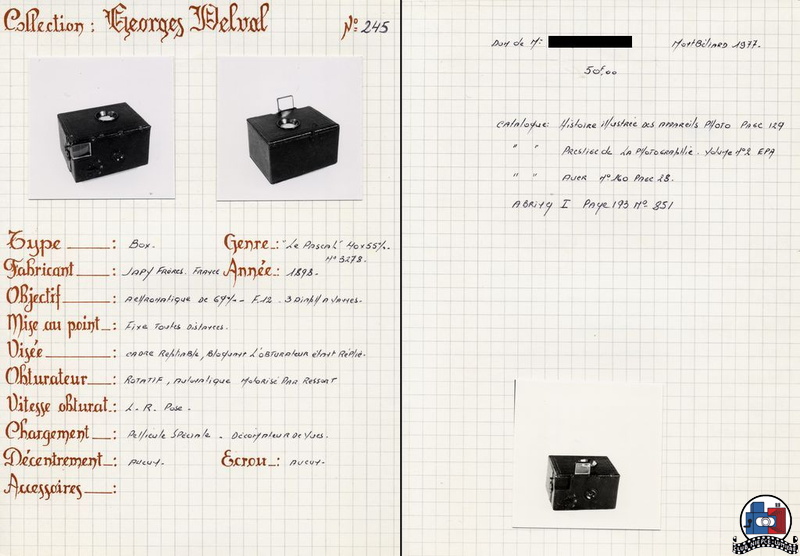 Collection : Georges Delval
N° 245
Type : Box.
Genre : "Le Pascal" 40x55%.
N° 3278.
Fabricant : JAPY Frères. France
Année : 1898.
Objectif : Achromatique de 69%. F.12. 3 Diaphragmes.
Mise au point : Fixe Toutes Distances.
Visée : cadre Repliable, Bloquant l'obturateur étant Replié.
Obturateur : Rotatif, Automatique Motorisé Par Ressort
Vitesse obturat. : L. R. Pose.
Chargement : Pellicule Spéciale. Décompteur de Vues.
Décentrement : Aucun.
Ecrou : Aucun.
Accessoires :
Don de Mr
Montbéliard 1977.
50f,00
Catalogue: Histoire illustrée des appareils Photo Page 129
" " Prestige de La Photographie. Volume N°2 EPA
" " Auer N° 160 Page 28.
Abring I Page 193 N° 851